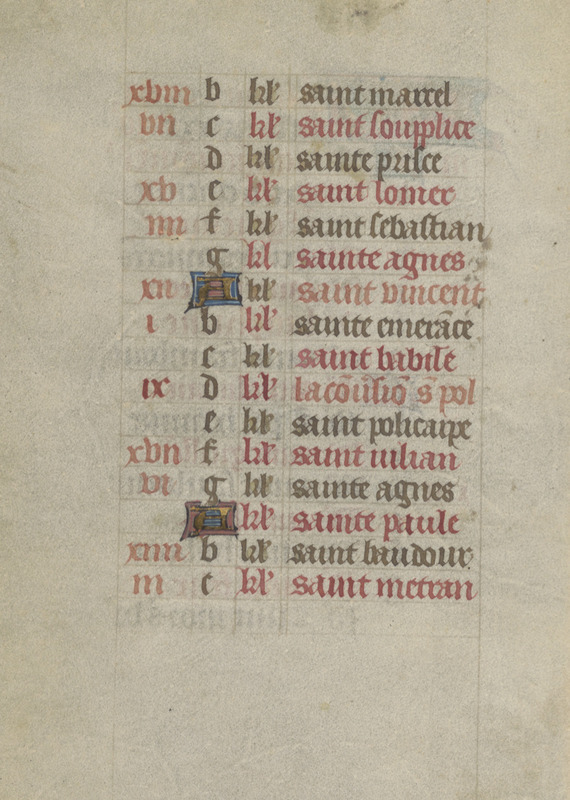 xviii b kl' saint marcel
vii c kl' saint souplice
d kl' sainte prisce
xv e kl' saint lomer
iiii f kl' saint sebastian
g kl sainte agnes
xii A kl' saint vincent
i b kl' sainte emerāce
c kl' saint babile
ix d kl' la cōuīsiō s pol
e kl' saint policarpe
xvii f kl' saint iulian
vi g kl' sainte agnes
A kl' sainte paule
xiiii b kl' saint baudour
iii c kl' saint metran